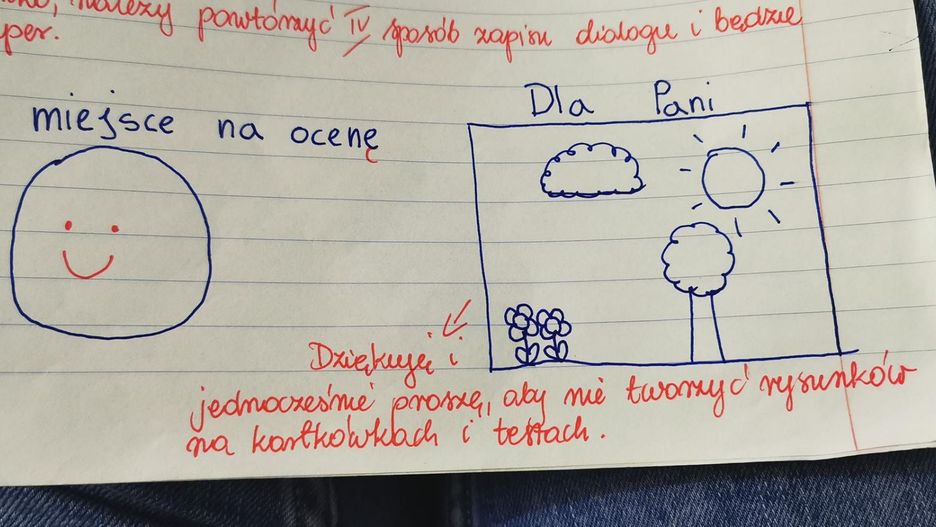 należy powtórzyć IV sposób zapisu dialogu i będzie
per.
Dla Pani
miejsce na ocenę
Dziękuję i
jednocześnie proszę, aby nie tworzyć rysunków
na kartkówkach i testach.